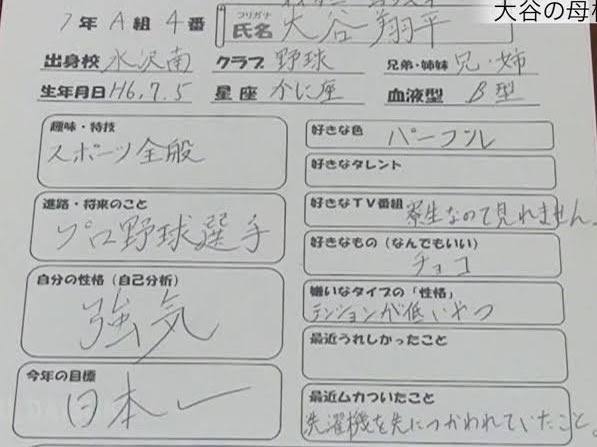 大谷の母校
1年 A組 4番
フリガナ
氏名 大谷翔平
出身校 水沢南 クラブ 野球 兄弟・姉妹 兄・姉
生年月日 H6.7.5 星座 かに座 血液型 B型
趣味・特技
スポーツ全般
進路・将来のこと
プロ野球選手
自分の性格(自己分析)
強気
今年の目標
日本一
好きな色
パープル
好きなタレント
好きなTV番組
寮生なので見れません。
好きなもの(なんでもいい)
チョコ
嫌いなタイプの「性格」
テンションが低いやつ
最近うれしかったこと
最近ムカついたこと
洗濯機を先につかわれていたこと。